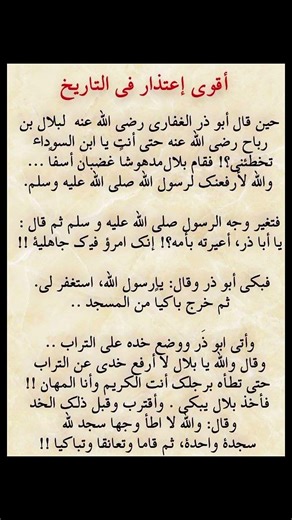 أقوى إعتذار فى التاريخ
حين قال أبو ذر الغفارى رضى الله عنه لبلال بن
رباح رضى الله عنه حتى أنت يا ابن السوداء
تخطئنى؟! فقام بلال مدهوشا غضبان أسفا ...
والله لأرفعنك لرسول الله صلى الله عليه وسلم.
فتغير وجه الرسول صلى الله عليه و سلم ثم قال :
يا أبا ذر، أعيرته بأمه؟! إنك امرؤ فيك جاهلية !!
فبكى أبو ذر وقال: يارسول الله، استغفر لى.
ثم خرج باكيا من المسجد ..
وأتى ابو ذَر ووضع خده على التراب ..
وقال والله يا بلال لا أرفع خدى عن التراب
حتى تطأه برجلك أنت الكريم وأنا المهان !!
فأخذ بلال يبكى . وأقترب وقبل ذلك الخد
وقال: والله لا اطأ وجها سجد لله
سجدة واحدة، ثم قاما وتعانقا وتباكيا !!